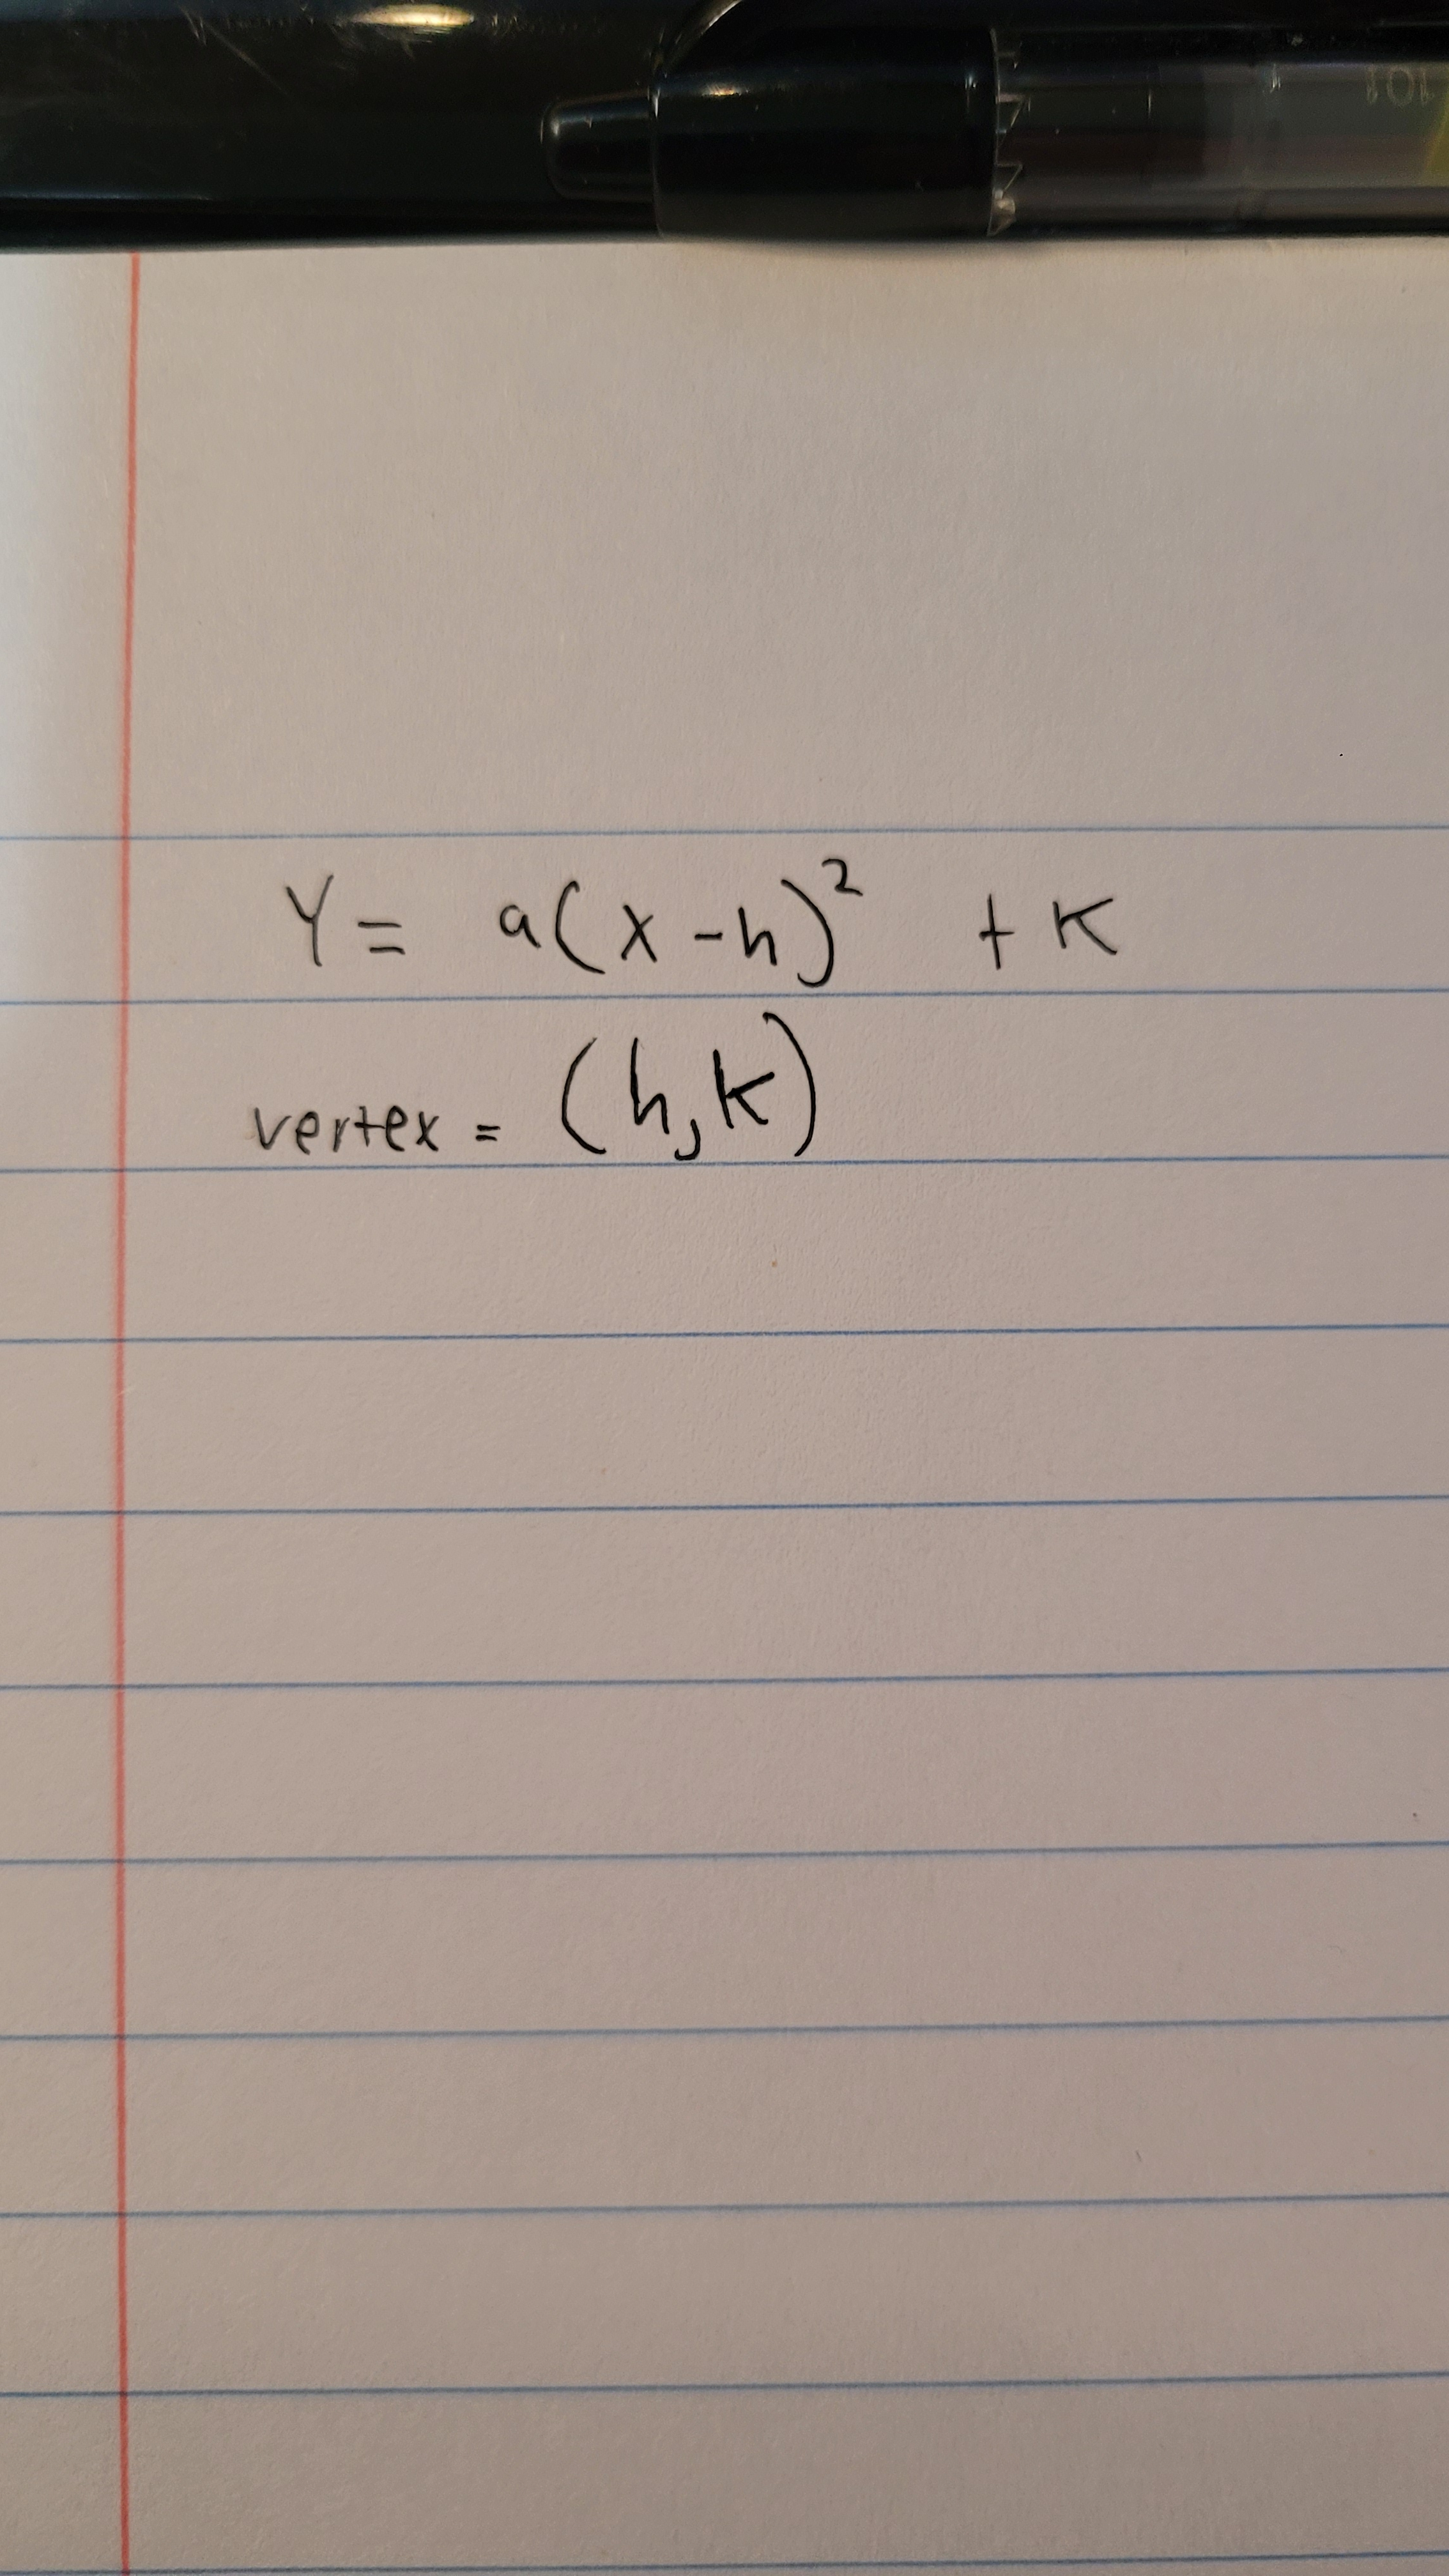 101
Y = a(x-h)² + K
vertex = (h,K)